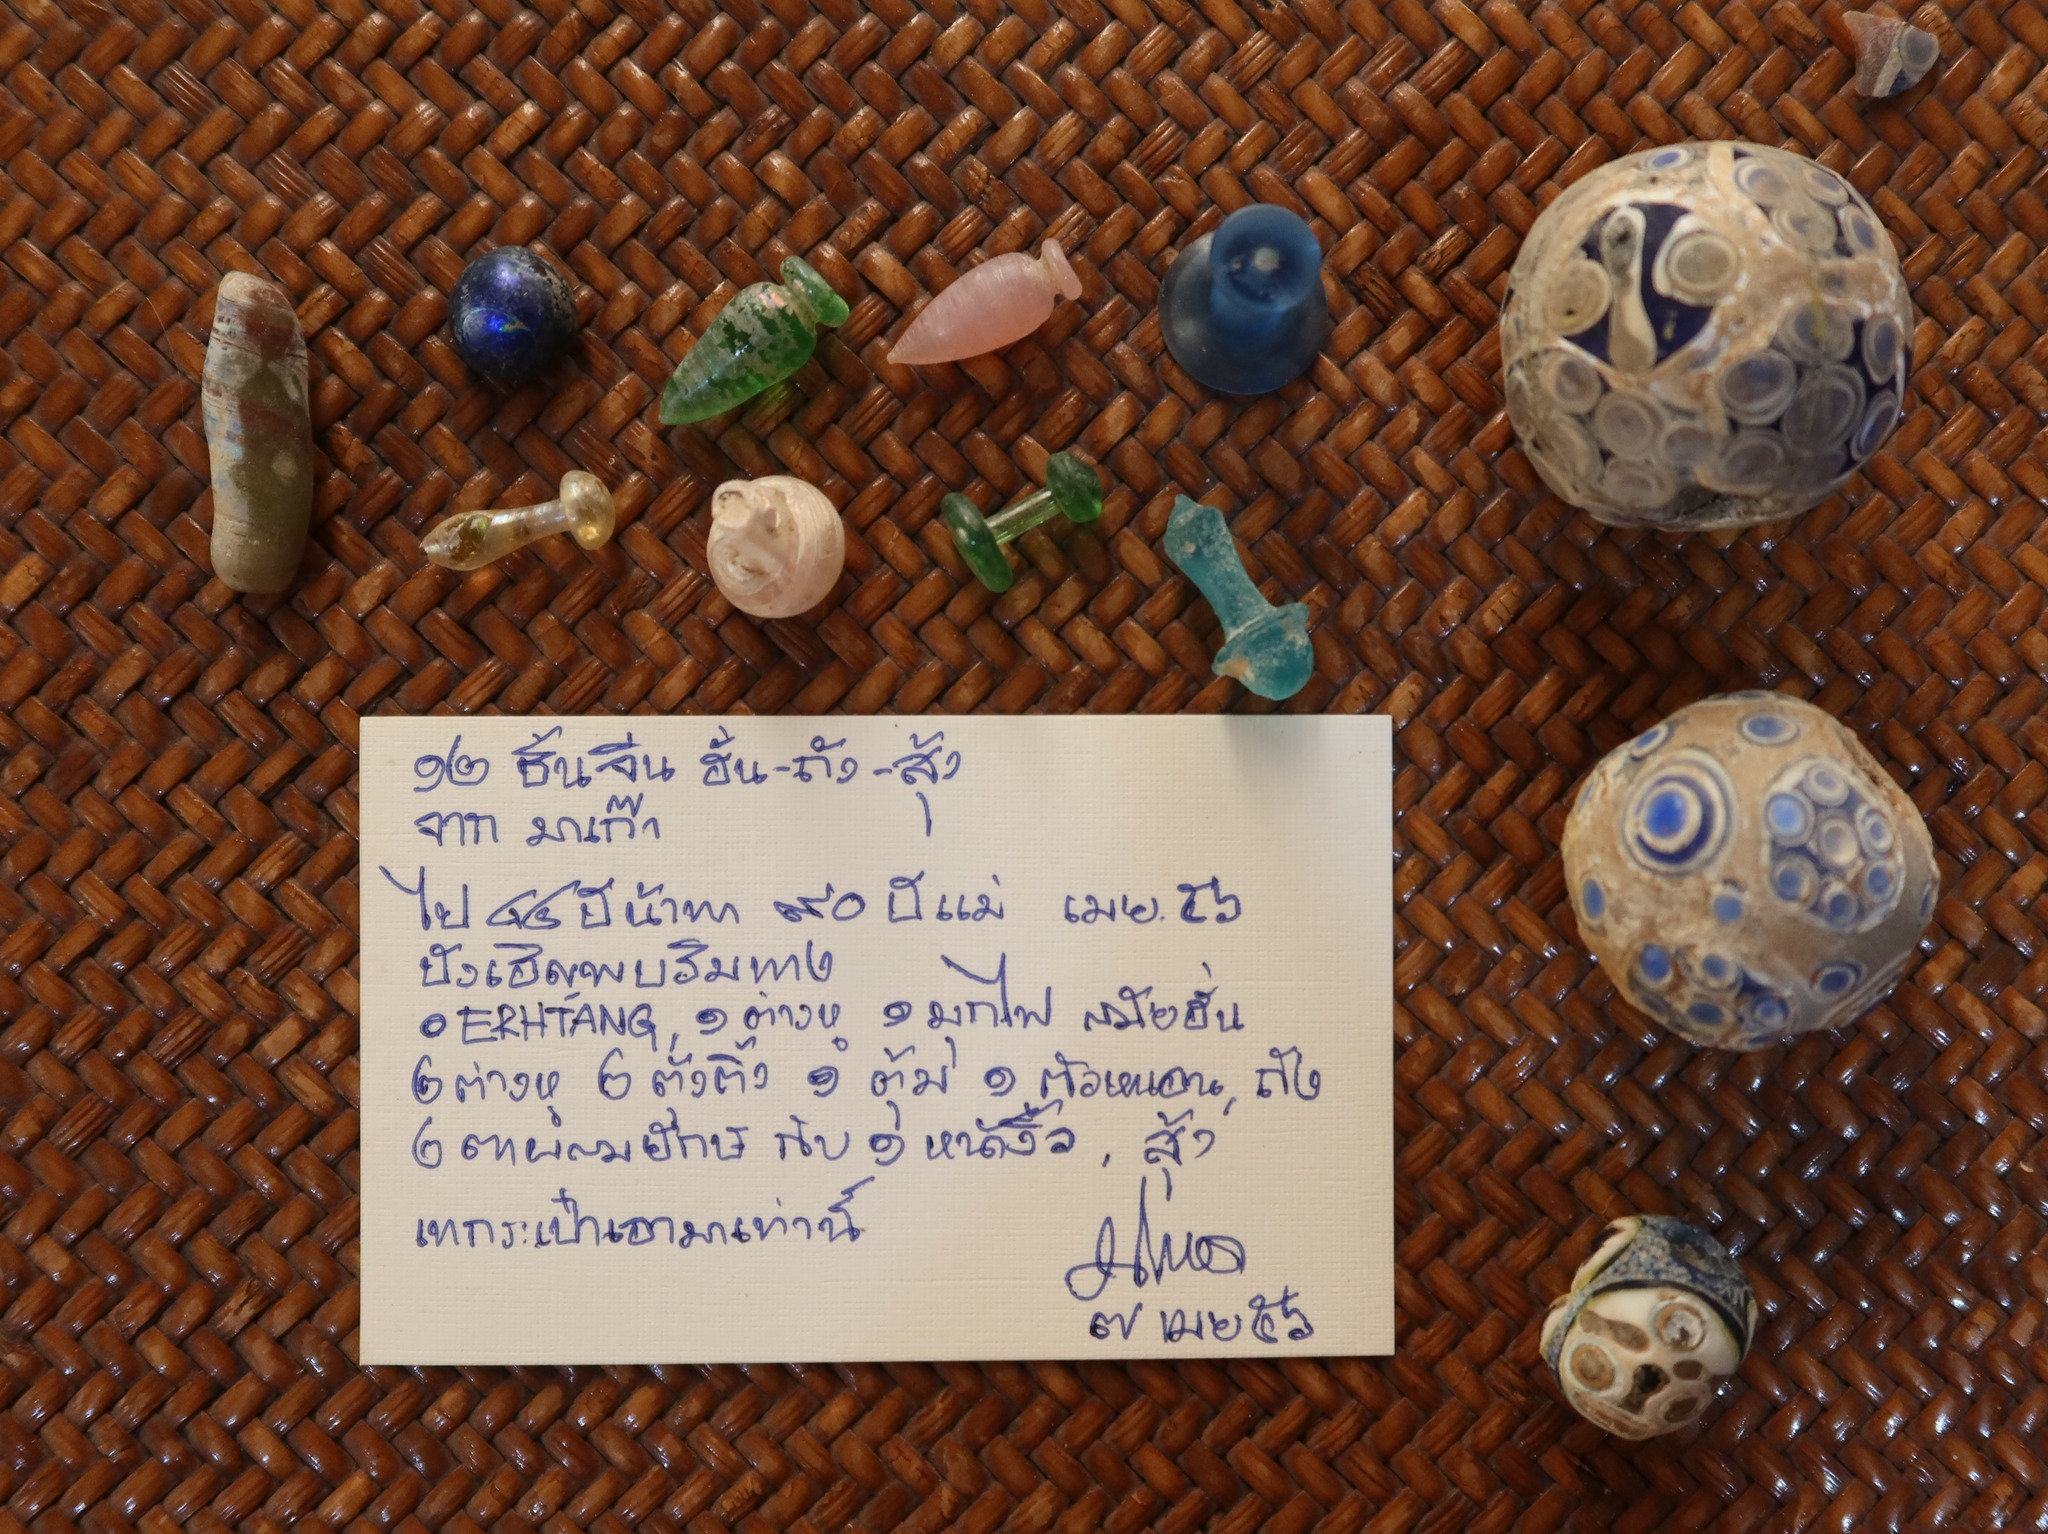 ๑๒ ชิ้นจีน ฮั่น-ถัง-สุ้ง
จาก มาเก๊า
ไป ๔๔ ปีน้าทา ๙๐ ปีแม่ เมย. ๕๖
ยังเฮิลพบริมทาง
๐ ERHTANG, ๑ ต่างหู ๑ มุกไฟ สมัยฮั่น
๒ ต่างหู ๒ ตั้งติ้ง ๑ ตุ้ม ๑ ตัวหนอน, ถัง
๒ ตาผสมยักษ์ กับ ๑ หน้างิ้ว, สุ้ง
เทกระเป๋าเอามาเท่านี้
๗ เมย ๕๖